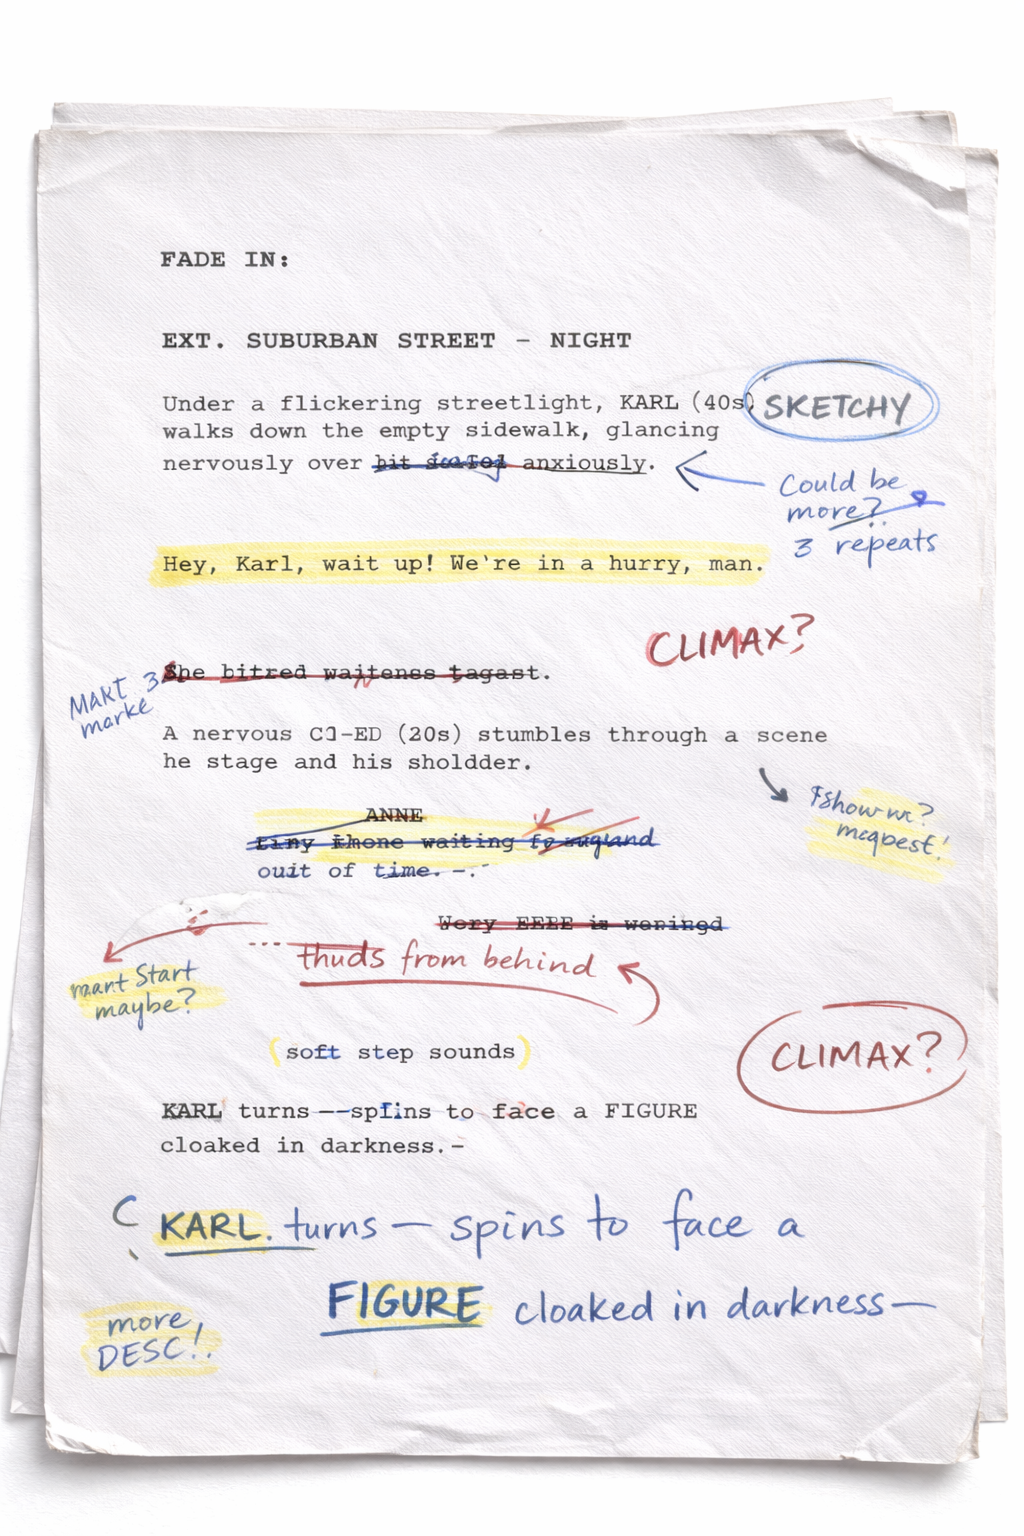 FADE IN:
EXT. SUBURBAN STREET – NIGHT
Under a flickering streetlight, KARL (40s)
SKETCHY
walks down the empty sidewalk, glancing
nervously over bit anxiously.
Could be
more?
3 repeats
Hey, Karl, wait up! We're in a hurry, man.
CLIMAX?
She bitred waitenss tagast.
MAKT 3
marke
A nervous (20s) stumbles through a scene
he stage and his sholdder.
ANNE
waiting
ouit of time. –.
Wory EEBE is woninged
thuds from behind
Start
maybe?
(soft step sounds)
CLIMAX?
KARL turns —spins to face a FIGURE
cloaked in darkness.–
KARL. turns — spins to face a
FIGURE cloaked in darkness—
more,
DESC!.